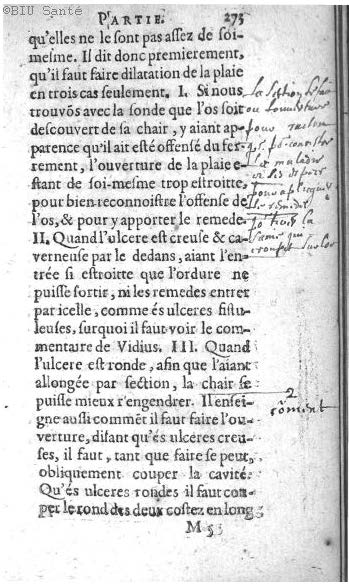 ©BIU Santé
PARTIE. 275
qu'elles ne le sont pas assez de soi-
mesme. Il dit donc premierement,
qu'il faut faire dilatation de la plaie
en trois cas seulement. I. Si nous
trouvõs avec la sonde que l'os soit
descouvert de sa chair, y aiant ap-
parence qu'il ait esté offensé du fer-
rement, l'ouverture de la plaie e-
stant de soi-mesme trop estroitte,
pour bien reconnoistre l'offense de
l'os, & pour y apporter le remede.
II. Quand l'ulcere est creuse & ca-
verneuse par le dedans, aiant l'en-
trée si estroitte que l'ordure ne
puisse sortir, ni les remedes entrer
par icelle, comme és ulceres fistu-
leuses, surquoi il faut voir le com-
mentaire de Vidius. III. Quand
l'ulcere est ronde, afin que l'aiant
allongée par section, la chair se
puisse mieux r'engendrer. Il ensei-
gne aussi commẽt il faut faire l'ou-
verture, disant qu'és ulceres creu-
ses, il faut, tant que faire se peut,
obliquement couper la cavité.
Qu'és ulceres rondes il faut cou-
per le rond des deux costez en long
M 5
la section
ou louverture
pour
la
2
cõment